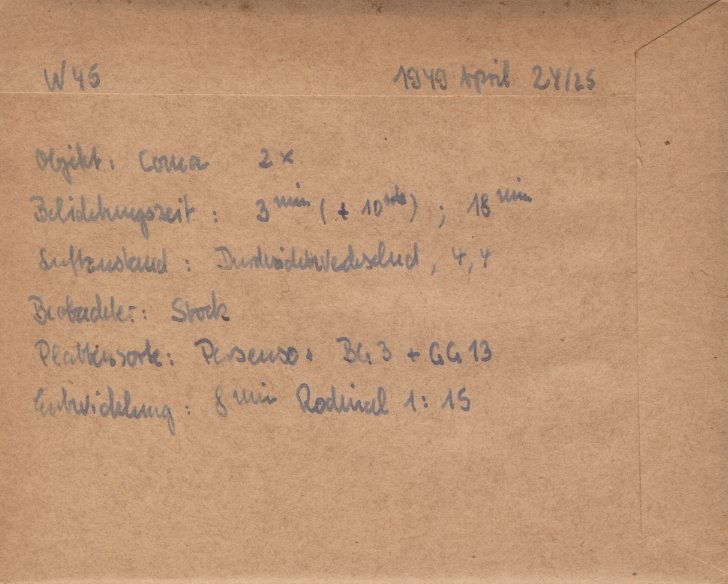 W 45 1949 April 24/25
Objekt: Coma 2 x
Belichtungszeit: 3 min (+ 10 sek); 18 min
Luftzustand: Durchsicht wechselnd, 4, 4
Beobachter: Stock
Plattensorte: Persenso: BG 3 + GG 13
Entwicklung: 8 min Rodinal 1:15